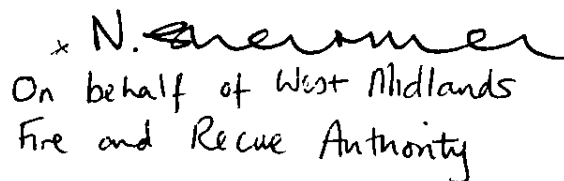 x N.
On behalf of West Midlands
Fire and Recue Authority